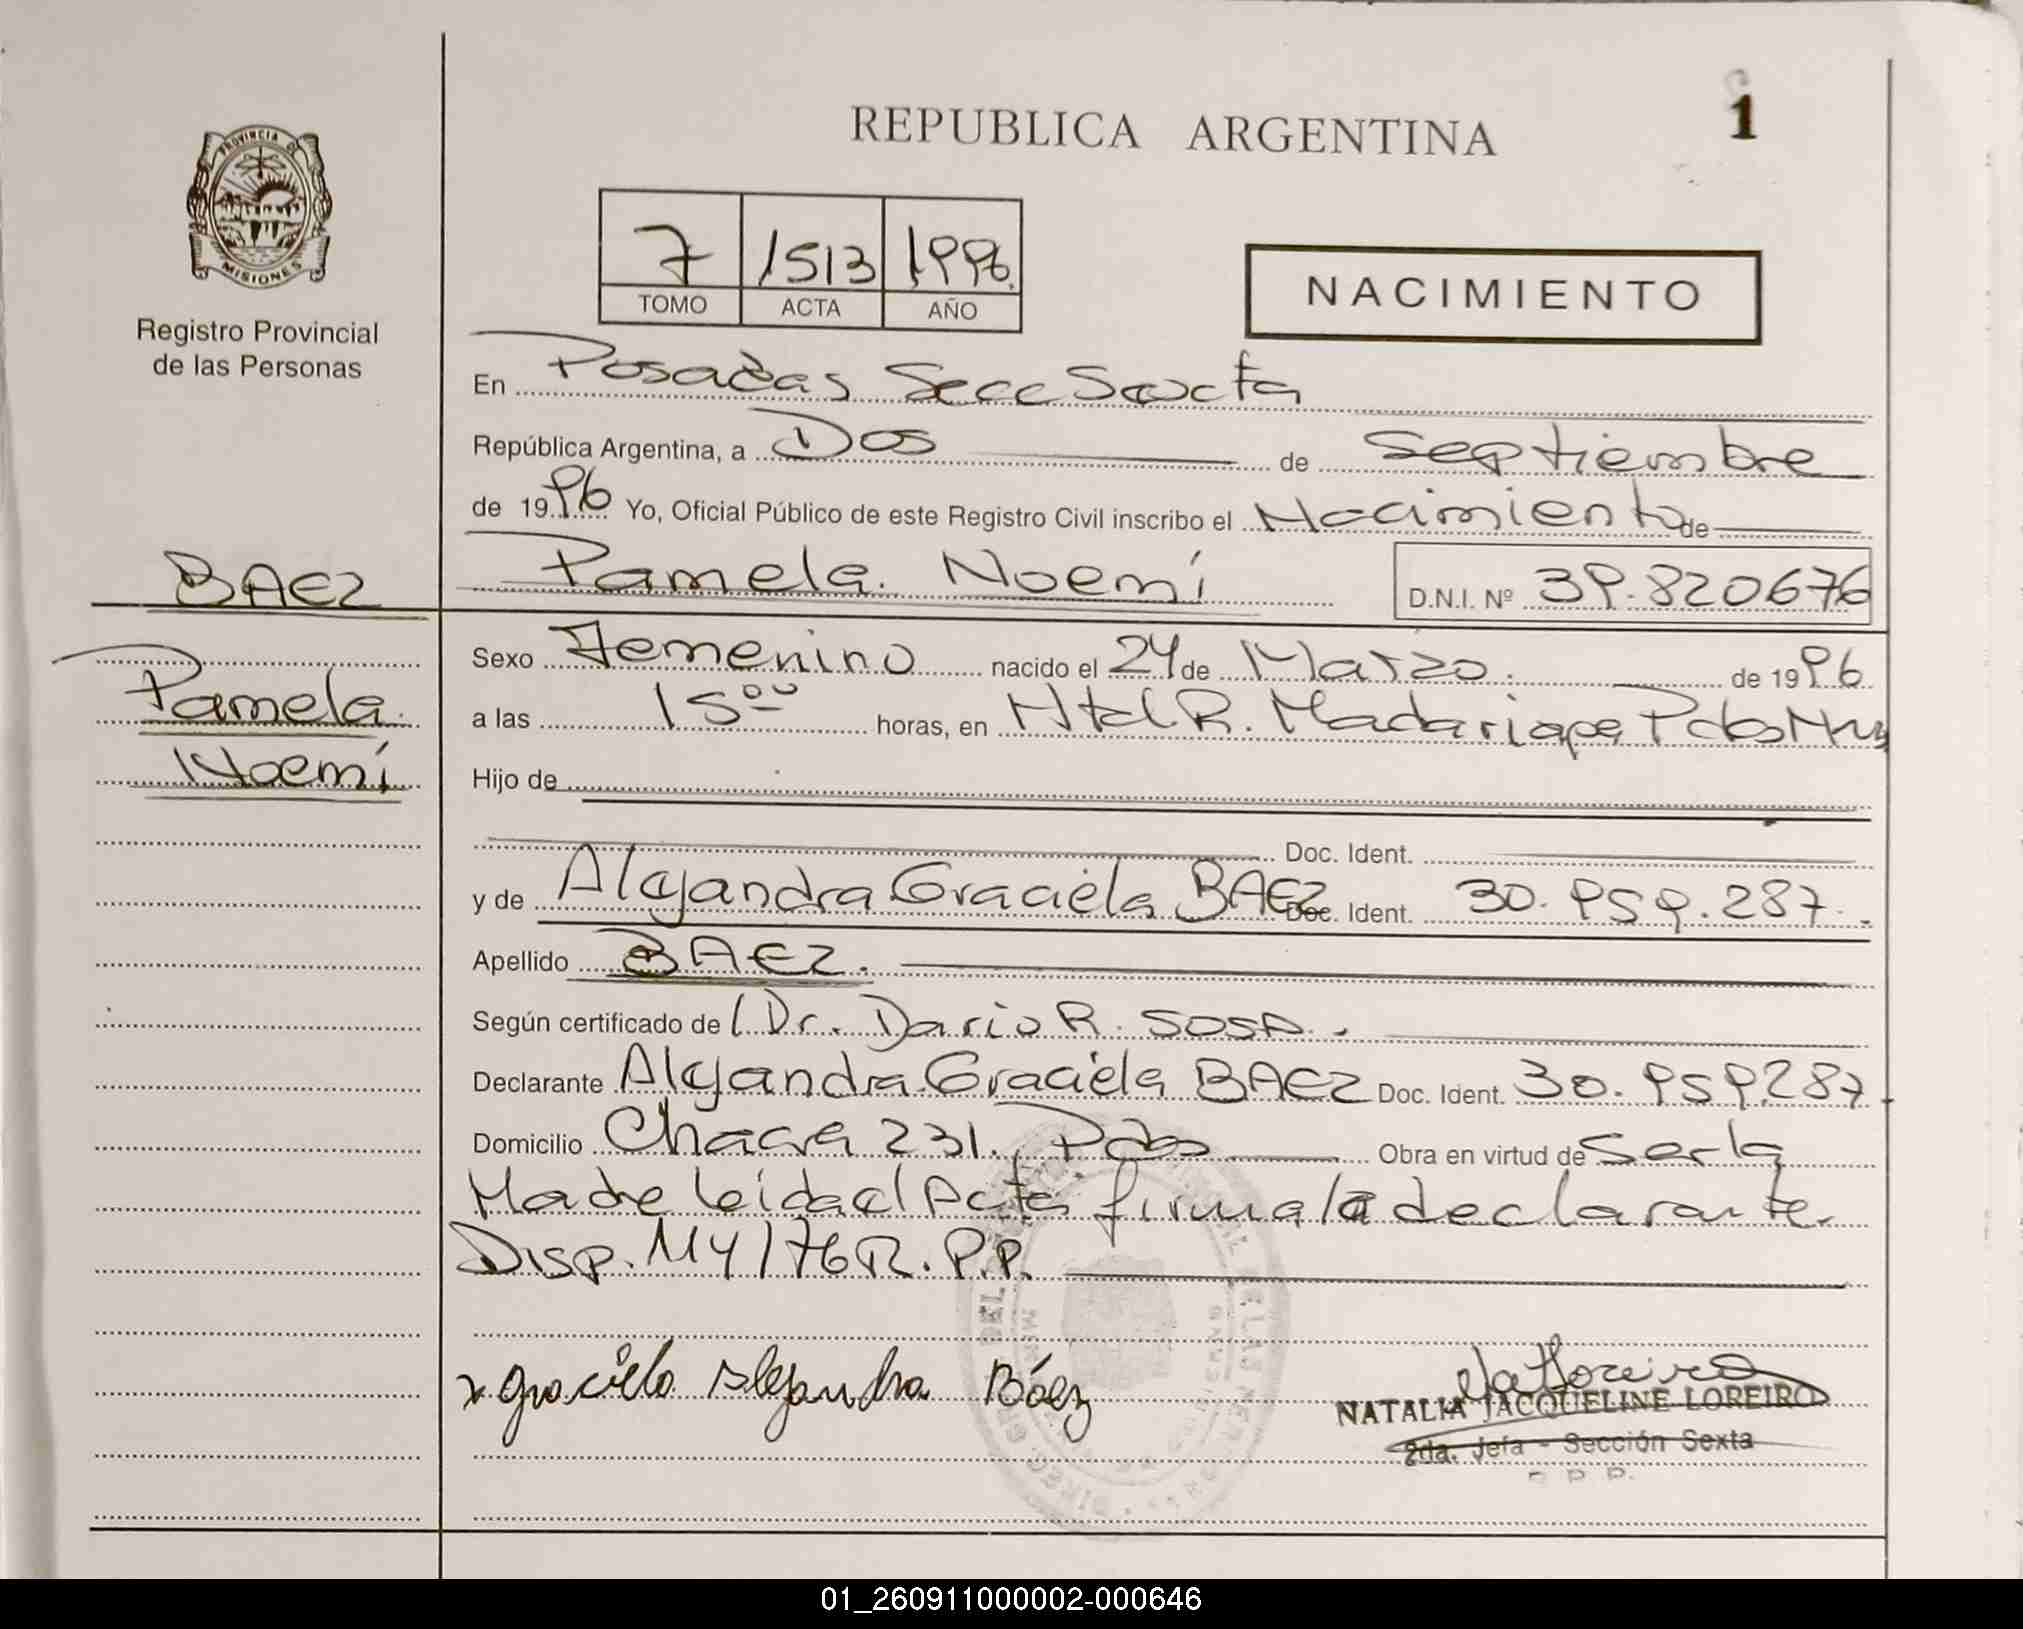 REPUBLICA ARGENTINA
1
PROVINCIA DE
MISIONES
Registro Provincial
de las Personas
7 1513 1996
TOMO ACTA AÑO
NACIMIENTO
En Posadas Secc Sexta
República Argentina, a Dos de Septiembre
de 1996 Yo, Oficial Público de este Registro Civil inscribo el Nacimiento de
BAEZ
Pamela Noemí D.N.I. Nº 39.820676
Pamela
Noemí
Sexo Femenino nacido el 24 de Marzo de 1996
a las 15 00 horas, en Htal R. Madariaga Pdas Mnes
Hijo de
Doc. Ident.
y de Alejandra Graciela BAEZ Doc. Ident. 30.959.287
Apellido BAEZ.
Según certificado de Dr. Dario R. SOSA.
Declarante Alejandra Graciela BAEZ Doc. Ident. 30.959.287
Domicilio Chacra 231. Pdas Obra en virtud de Ser la
Madre leida el Acta firma la declarante
Disp. 114/76 R.P.P.
x Graciela Alejandra Báez
NATALIA JACQUELINE LOREIRO
2da. Jefa - Sección Sexta
01_260911000002-000646